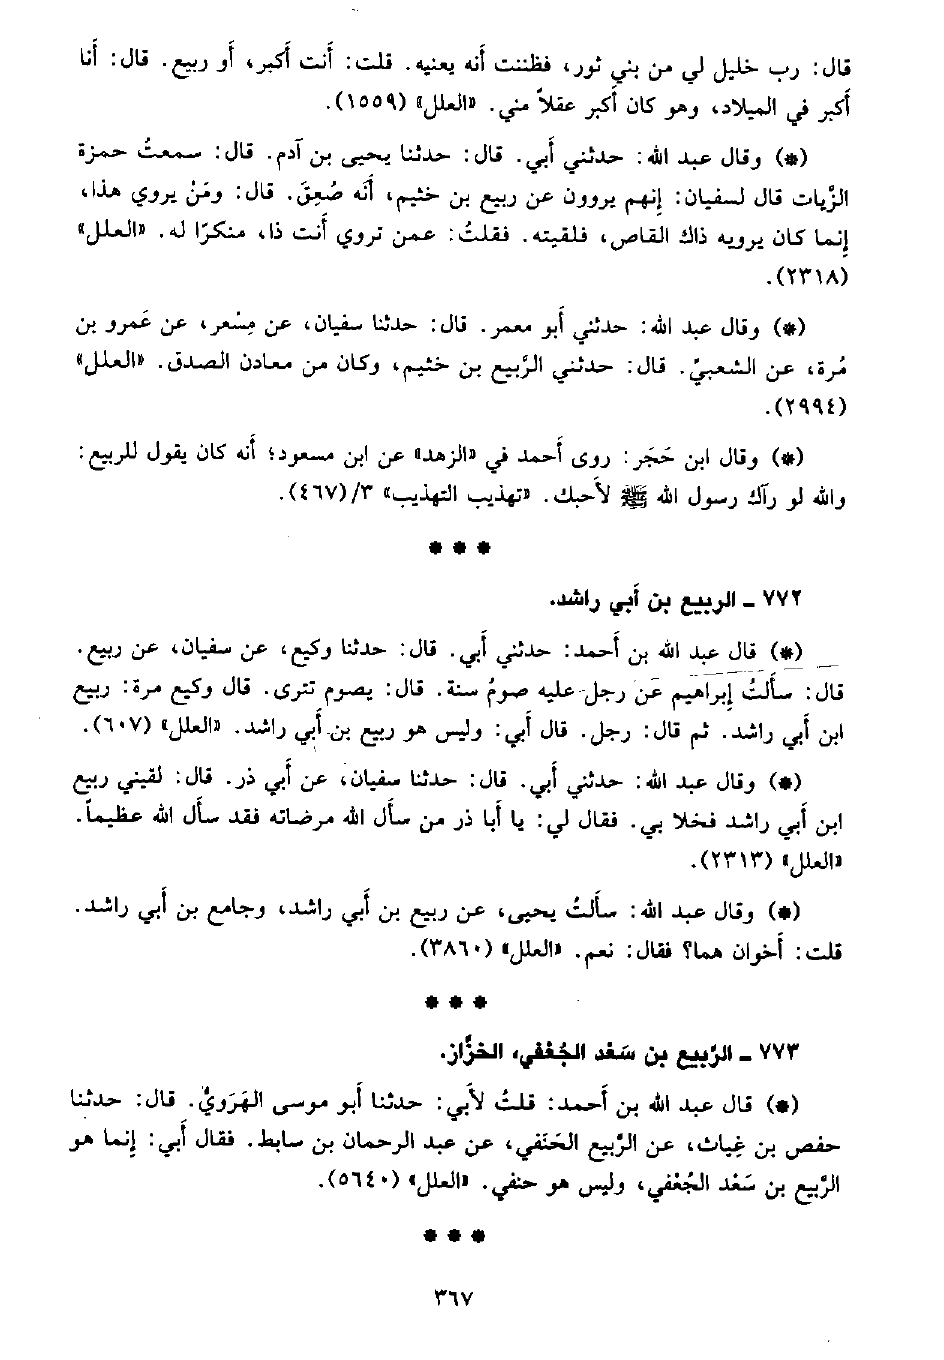 قال: رب خليل لي من بني ثور، فظننت أنه يعنيه. قلت: أنت أكبر، أو ربيع. قال: أنا
أكبر في الميلاد، وهو كان أكبر عقلاً مني. «العلل» (١٥٥٩).
(*) وقال عبد الله: حدثني أبي. قال: حدثنا يحيى بن آدم. قال: سمعتُ حمزة
الزَّيات قال لسفيان: إنهم يروون عن ربيع بن خثيم، أنه صُعِقَ. قال: ومَنْ يروي هذا،
إنما كان يرويه ذاك القاص، فلقيته. فقلتُ: عمن تروي أنت ذا، منكرًا له. «العلل»
(٢٣١٨).
(*) وقال عبد الله: حدثني أبو معمر. قال: حدثنا سفيان، عن مِسْعر، عن عَمرو بن
مُرة، عن الشعبيِّ. قال: حدثني الرَّبيع بن خثيم، وكان من معادن الصدق. «العلل»
(٢٩٩٤).
(*) وقال ابن حَجَر: روى أحمد في «الزهد» عن ابن مسعود؛ أنه كان يقول للربيع:
والله لو رآك رسول الله ﷺ لأحبك. «تهذيب التهذيب» ٣/(٤٦٧).
* * *
٧٧٢ ـ الربيع بن أبي راشد.
(*) قال عبد الله بن أحمد: حدثني أبي. قال: حدثنا وكيع، عن سفيان، عن ربيع.
قال: سألتُ إبراهيم عن رجل عليه صومُ سنة. قال: يصوم تترى. قال وكيع مرة: ربيع
ابن أبي راشد. ثم قال: رجل. قال أبي: وليس هو ربيع بن أبي راشد. «العلل» (٦٠٧).
(*) وقال عبد الله: حدثني أبي. قال: حدثنا سفيان، عن أبي ذر. قال: لقيني ربيع
ابن أبي راشد فخلا بي. فقال لي: يا أبا ذر من سأل الله مرضاته فقد سأل الله عظيماً.
«العلل» (٢٣١٣).
(*) وقال عبد الله: سألتُ يحيى، عن ربيع بن أبي راشد، وجامع بن أبي راشد.
قلت: أخوان هما؟ فقال: نعم. «العلل» (٣٨٦٠).
* * *
٧٧٣ ـ الرَّبيع بن سَعْد الجُعْفي، الخزَّاز.
(*) قال عبد الله بن أحمد: قلتُ لأبي: حدثنا أبو موسى الهَرَويُّ. قال: حدثنا
حفص بن غِياث، عن الرَّبيع الحَنَفي، عن عبد الرحمان بن سابط. فقال أبي: إنما هو
الرَّبيع بن سَعْد الجُعْفي، وليس هو حنفي. «العلل» (٥٦٤٠).
* * *
٣٦٧